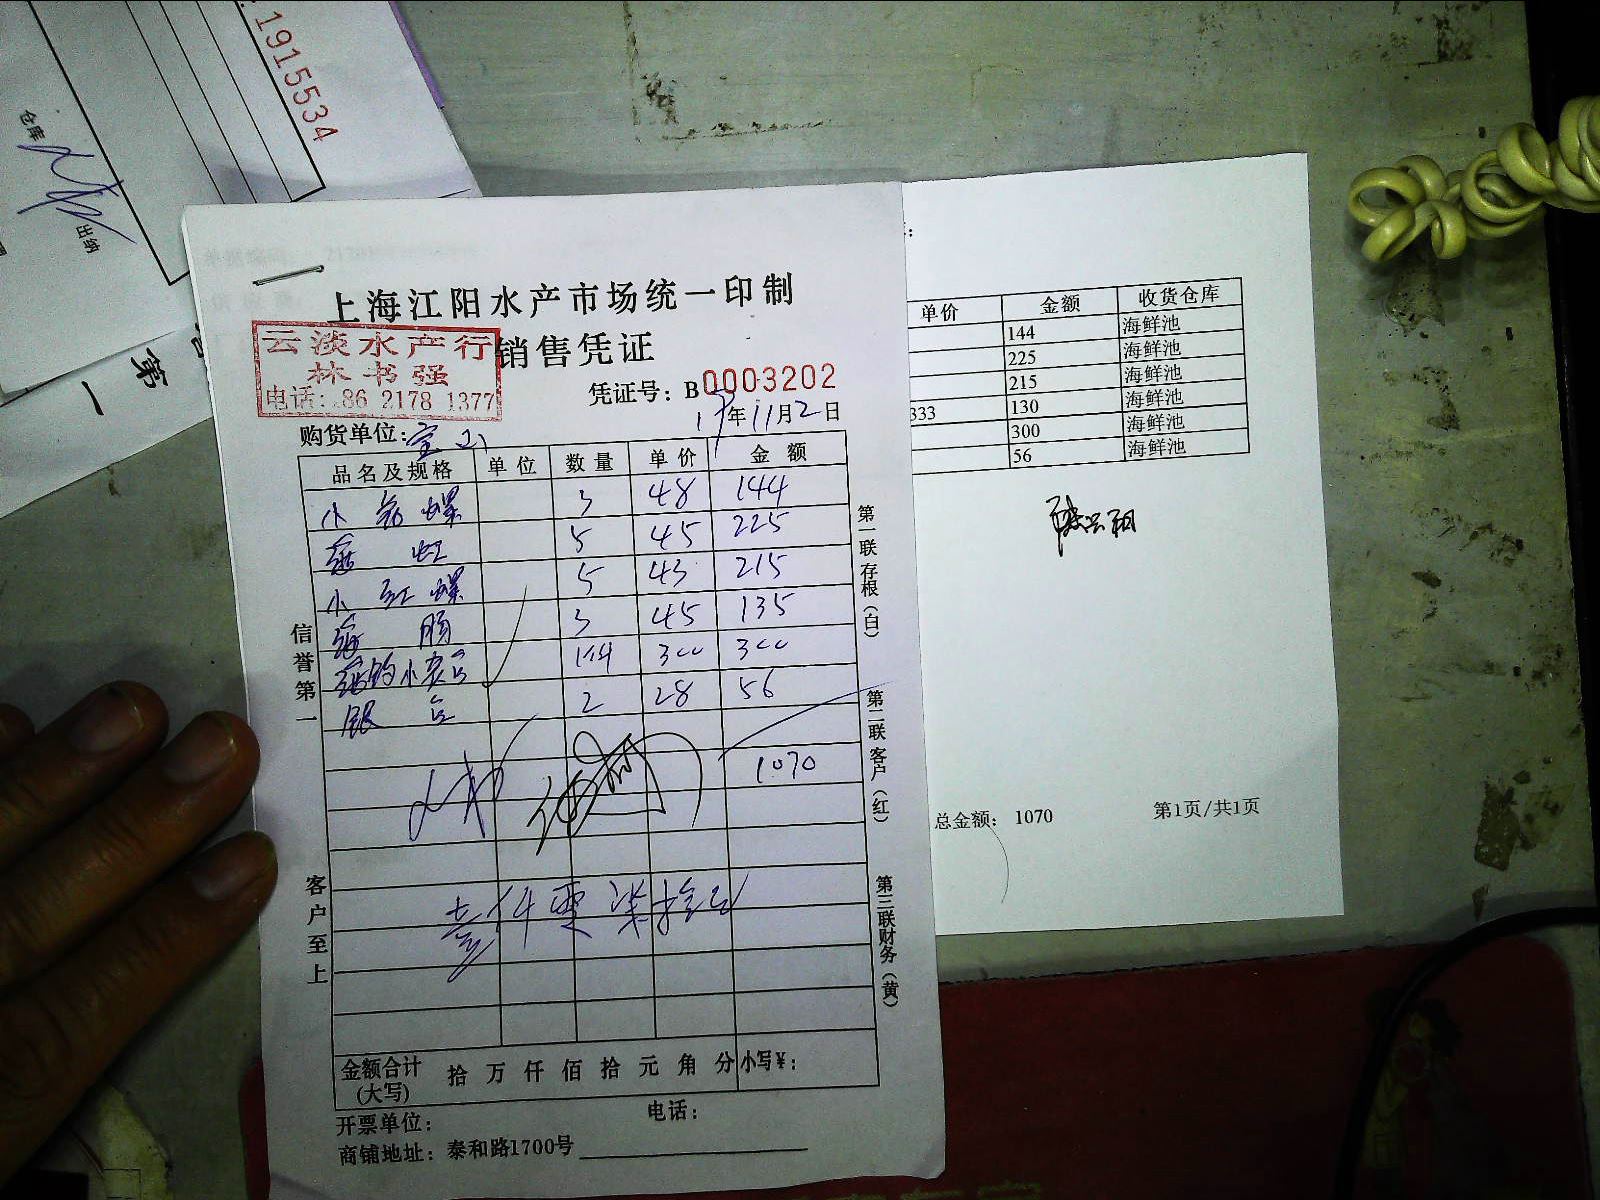 1915534
仓库
出纳
第一
上海江阳水产市场统一印制
销售凭证
云淡水产行
林书强
电话:86 2178 1377
凭证号：B0003202
17年11月2日
购货单位：宝山
品名及规格 单位 数量 单价 金额
小 螺 3 48 144
5 45 225
小红螺 5 43 215
海肠 3 45 135
300 300
银 2 28 56
1070
信誉第一
客户至上
第一联存根（白）
第二联客户（红）
第三联财务（黄）
金额合计(大写) 拾 万 仟 佰 拾 元 角 分 小写¥：
开票单位： 电话：
商铺地址：泰和路1700号
单价 金额 收货仓库
144 海鲜池
225 海鲜池
215 海鲜池
333 130 海鲜池
300 海鲜池
56 海鲜池
总金额： 1070 第1页/共1页